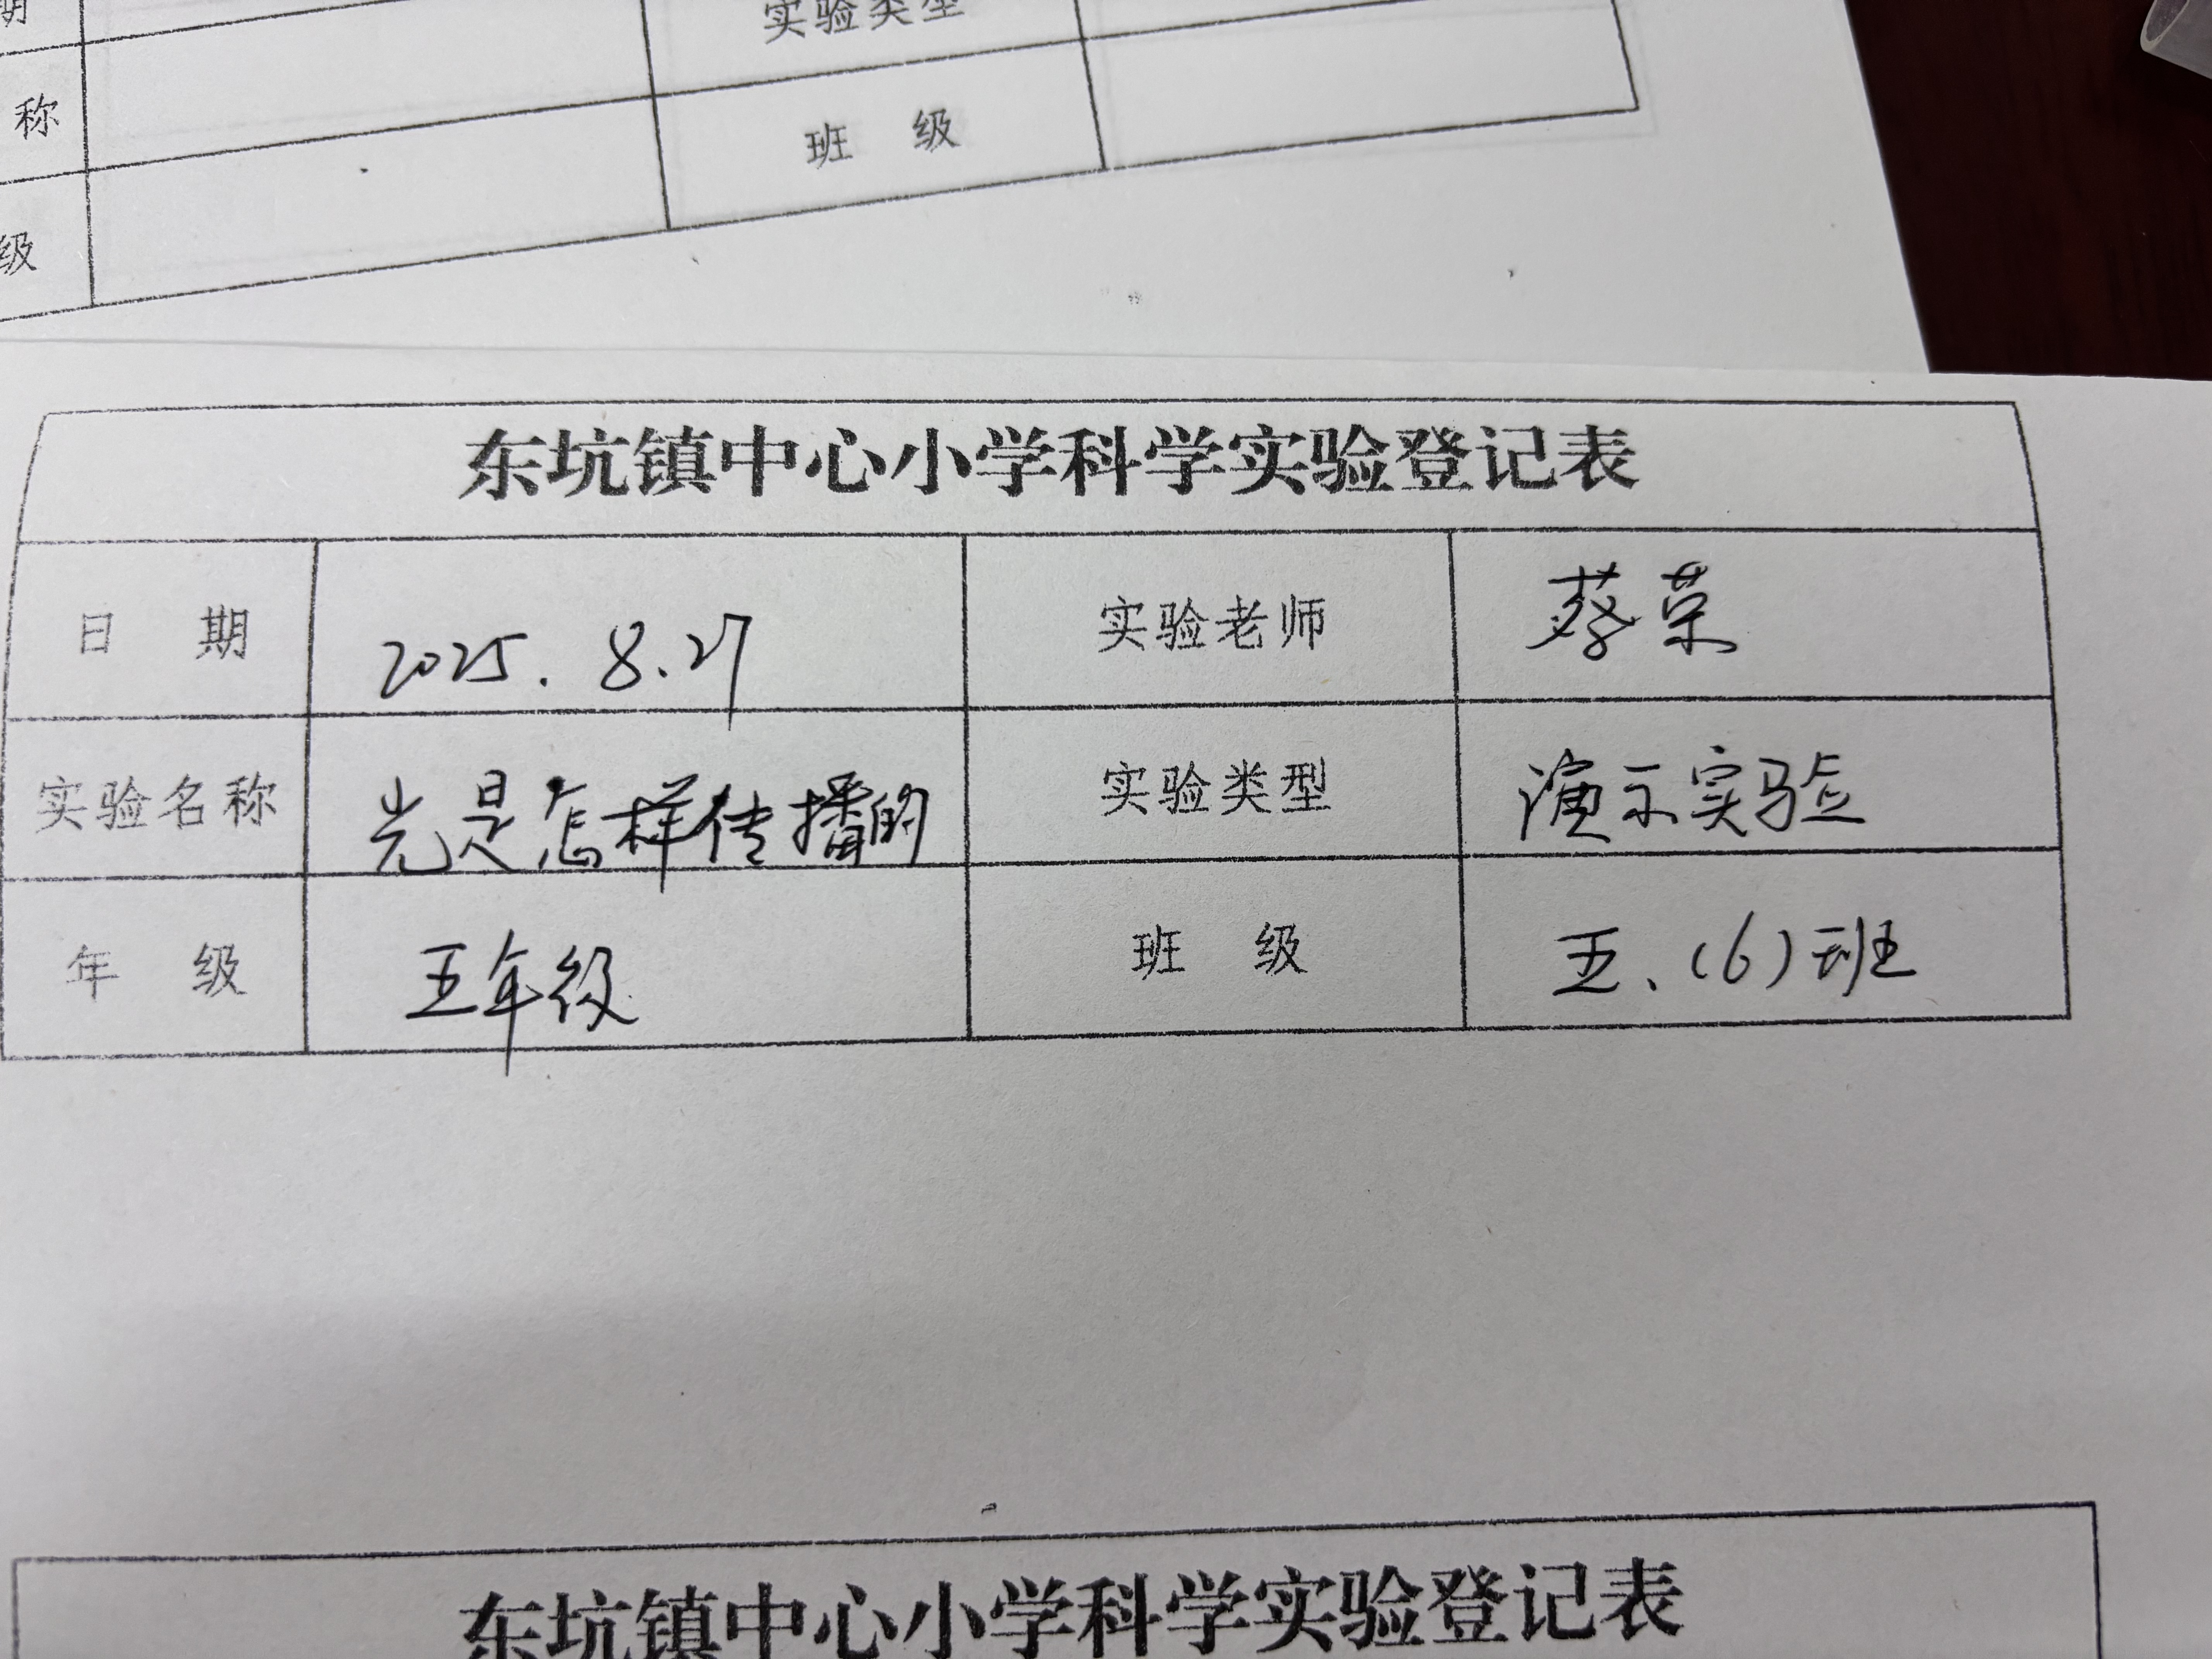 实验类型
称
班 级
级
东坑镇中心小学科学实验登记表
日 期 2025.8.27 实验老师 蔡荣
实验名称 光是怎样传播的 实验类型 演示实验
年 级 五年级 班 级 五、(6)班
东坑镇中心小学科学实验登记表